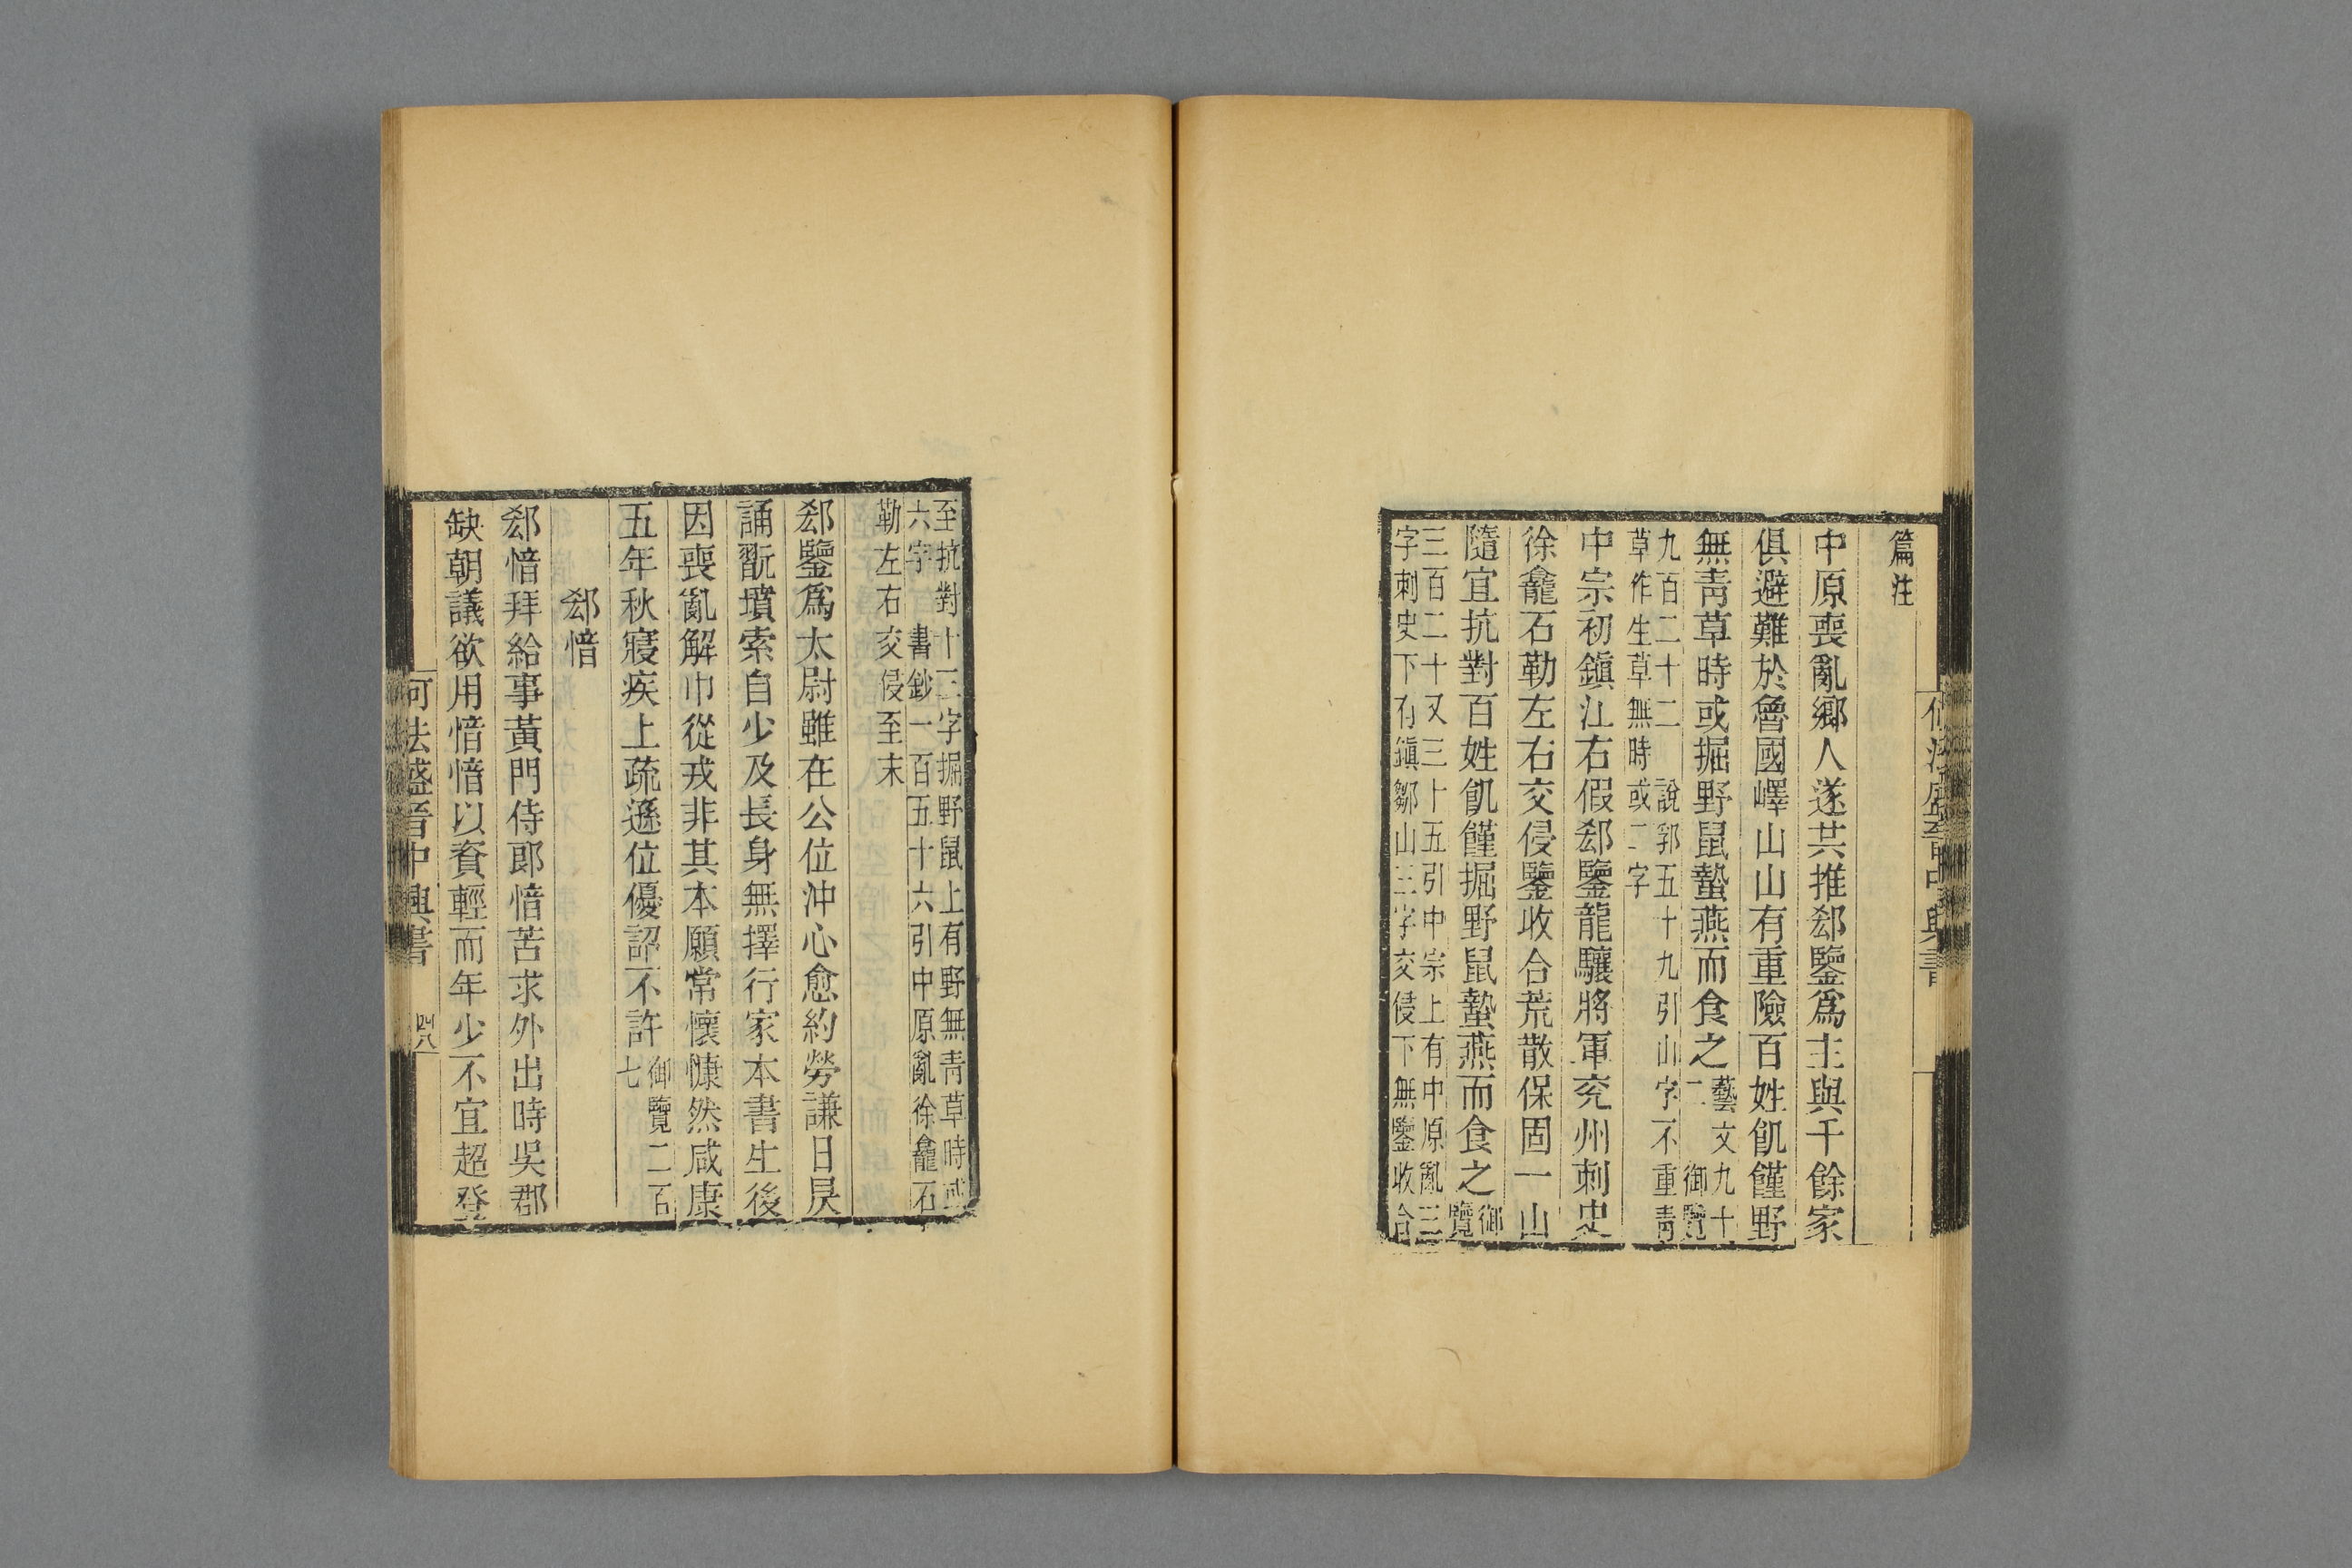 何法盛晉中興書
篇注
中原喪亂鄉人遂共推郄鑒爲主與千餘家
俱避難於魯國嶧山山有重險百姓飢饉野
無靑草時或掘野鼠蟄燕而食之藝文九十二 御覽
九百二十二 說郛五十九引山字不重靑
草作生草無時或二字
中宗初鎭江右假郄鑒龍驤將軍兖州刺史
徐龕石勒左右交侵鑒收合荒散保固一山
隨宜抗對百姓飢饉掘野鼠蟄燕而食之御覽
三百二十又三十五引中宗上有中原亂三
字刺史下有鎭鄒山三字交侵下無鑒收合
至抗對十三字掘野鼠上有野無靑草時或
六字 書鈔一百五十六引中原亂徐龕石
勒左右交侵至末
郄鑒爲太尉雖在公位沖心愈約勞謙日昃
誦翫墳索自少及長身無擇行家本書生後
因喪亂解巾從戎非其本願常懷慷然咸康
五年秋寢疾上疏遜位優詔不許御覽二百七
郄愔
郄愔拜給事黃門侍郎愔苦求外出時吳郡
缺朝議欲用愔愔以資輕而年少不宜超登
何法盛晉中興書
四八